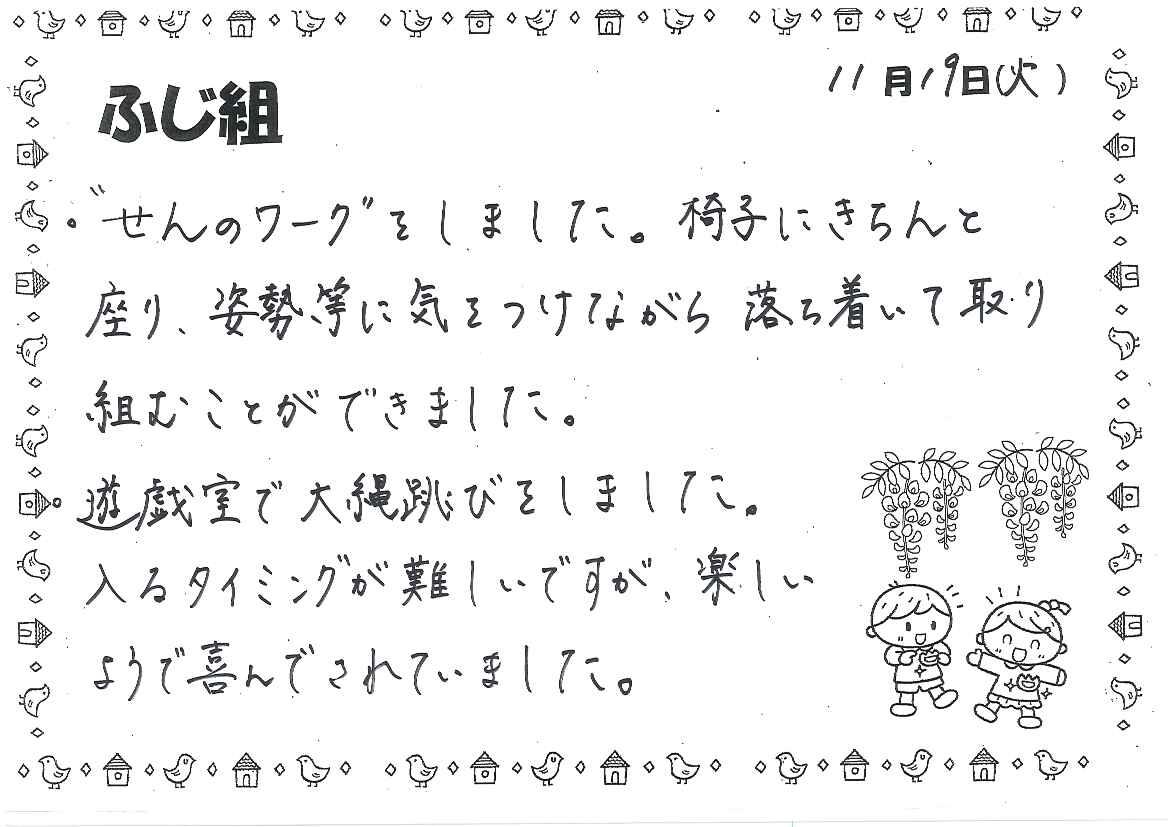 11月19日(火)
ふじ組
・"せんのワーク"をしました。椅子にきちんと
座り、姿勢等に気をつけながら落ち着いて取り
組むことができました。
・遊戯室で大縄跳びをしました。
入るタイミングが難しいですが、楽しい
ようで喜んでされていました。